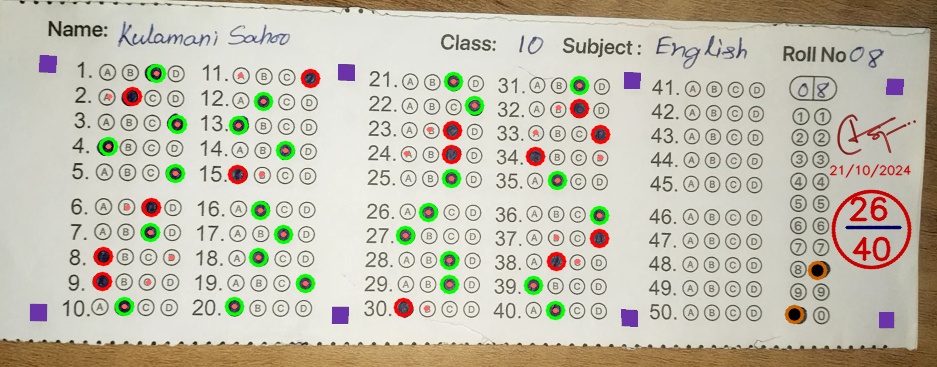 Name: Kulamani Sahoo
Class: 10 Subject: English Roll No 08
1. A B D
2. A C D
3. A B C
4. B C D
5. A B C
6. A B D
7. A B D
8. B C D
9. B C D
10. A C D
11. A B C
12. A C D
13. B C D
14. A B D
15. B C D
16. A C D
17. A B D
18. A C D
19. A B C
20. B C D
21. A B D
22. A B C
23. A B D
24. A B D
25. A B D
26. A C D
27. B C D
28. A B D
29. A B D
30. B C D
31. A B D
32. A B D
33. A B C
34. B C D
35. A C D
36. A B C
37. A B C
38. A C D
39. B C D
40. A C D
41. A B C D
42. A B C D
43. A B C D
44. A B C D
45. A B C D
46. A B C D
47. A B C D
48. A B C D
49. A B C D
50. A B C D
0 8
1 1
2 2
3 3
4 4
5 5
6 6
7 7
8
9 9
0
21/10/2024
26
40